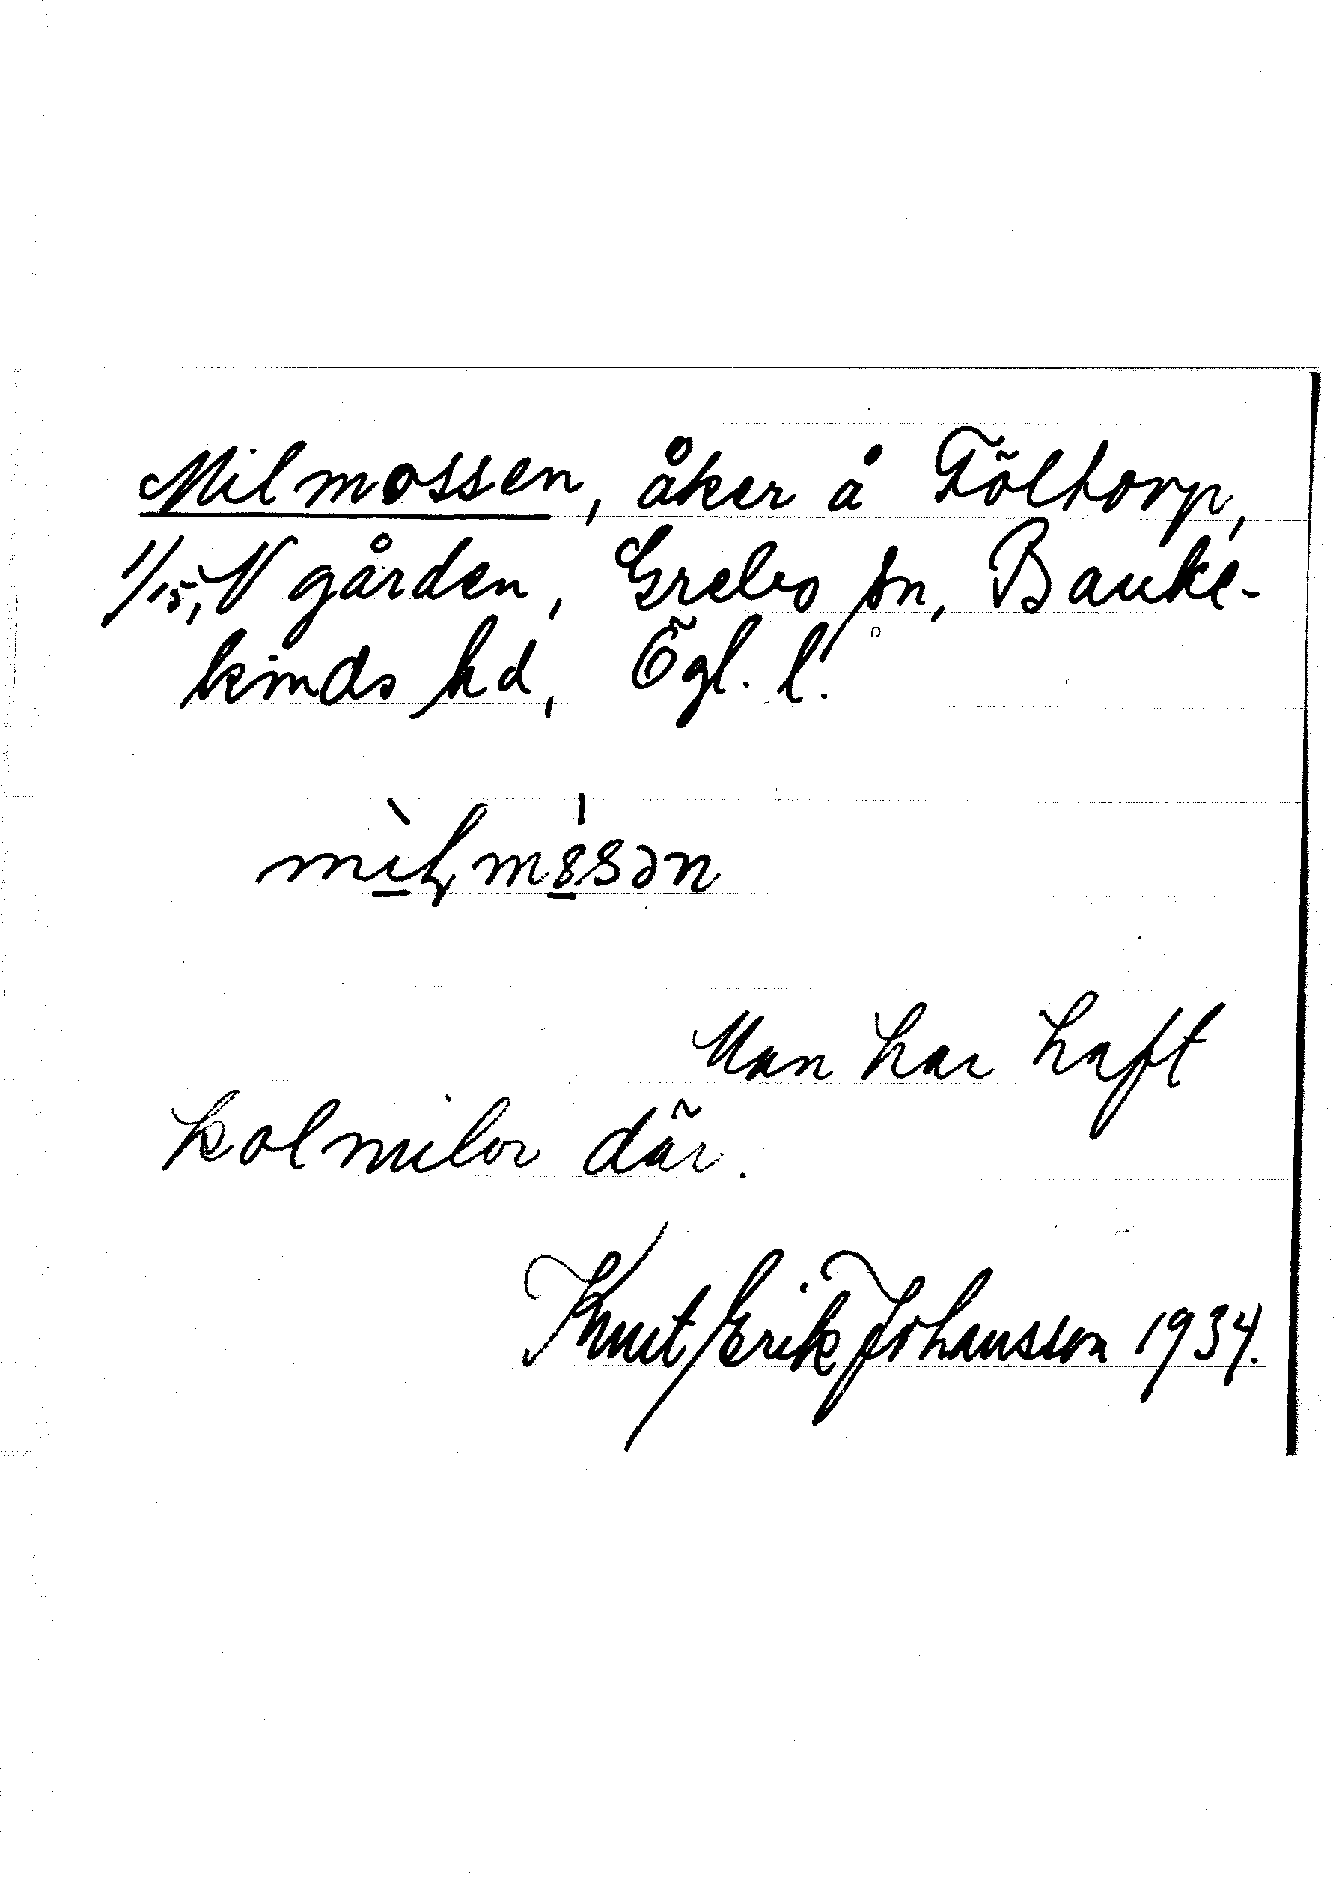 Milmossen, åker å Föltorp,
1/15, V gården, Grebo sn, Banke-
kinds hd, Ögl. l.
Man har haft
kolmilor där.
Knut Erik Johansson 1934.